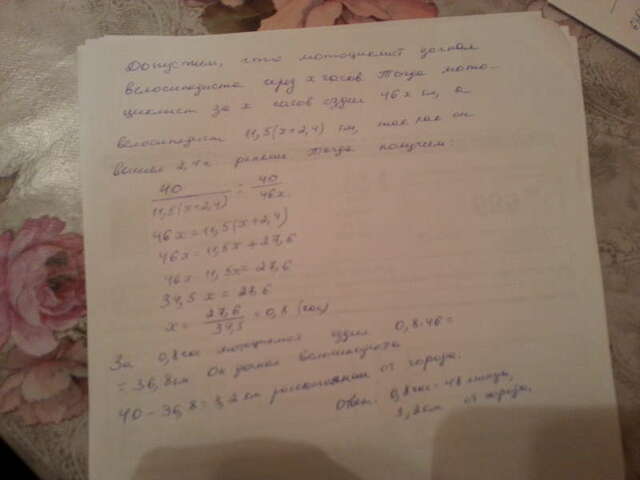 Допустим, что мотоциклист догнал
велосипедиста через x часов Тогда мото-
циклист за x часов ездил 46x км, а
велосипедист 11,5(x+2,4) км, так как он
выехал 2,4ч раньше Тогда получим:
40/11,5(x+2,4) = 40/46x
46x = 11,5(x+2,4)
46x = 11,5x + 27,6
46x - 11,5x = 27,6
34,5x = 27,6
x = 27,6/34,5 = 0,8 (час)
За 0,8час мотоциклист ездил 0,8·46=
= 36,8км Он догнал велосипедиста
40-36,8=3,2 км расстоянии от города.
Ответ: 0,8час=48 минут,
3,2км от города.